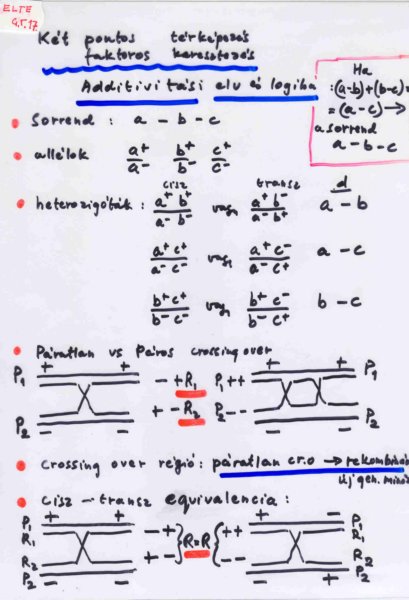 ELTE
G.T. 17
Két pontos térképezés
faktoros keresztezés
Additivitási elv és logika
Ha
:(a-b)+(b-c)=
=(a-c) →
a sorrend
a - b - c
• Sorrend : a - b - c
• allélok a⁺/a⁻ b⁺/b⁻ c⁺/c⁻
cisz transz d
• heterozigóták : a⁺b⁺/a⁻b⁻ vagy a⁺b⁻/a⁻b⁺ a - b
a⁺c⁺/a⁻c⁻ vagy a⁺c⁻/a⁻c⁺ a - c
b⁺c⁺/b⁻c⁻ vagy b⁺c⁻/b⁻c⁺ b - c
• Páratlan vs Páros crossing over
+ + + +
P₁ - + R₁ P₁ + + P₁
P₂ + - R₂ P₂ - - P₂
- - - -
• crossing over régió : páratlan cr.o → rekombináns
új gen. minős
• cisz - transz equivalencia :
P₁ + + + - P₁
R₁ - + } R=R { + + R₁
R₂ + - - - R₂
P₂ - - - + P₂